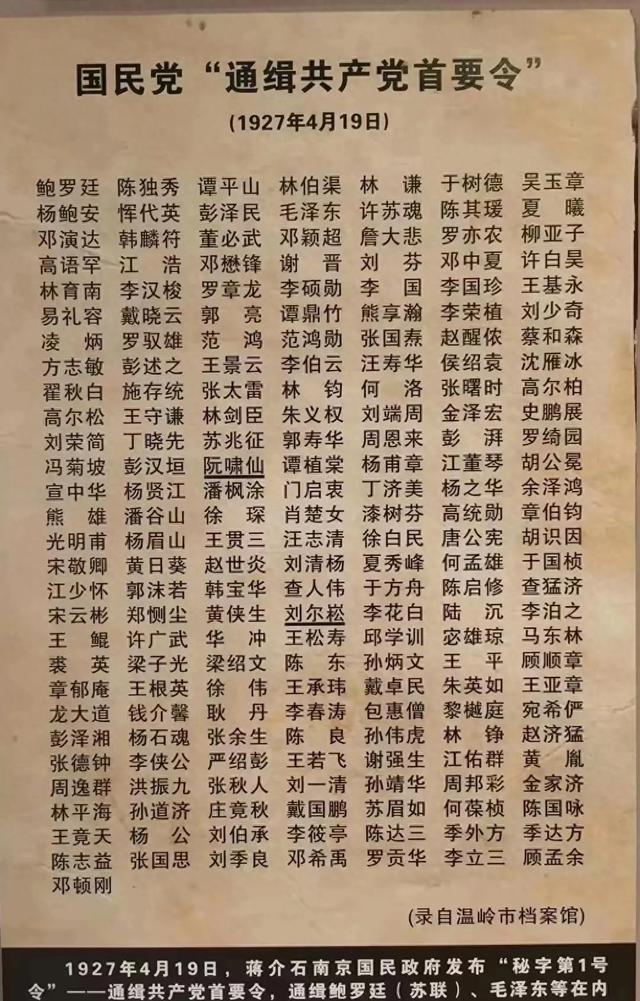 国民党“通缉共产党首要令”
(1927年4月19日)
鲍罗廷 陈独秀 谭平山 林伯渠 林 谦 于树德 吴玉章
杨鲍安 恽代英 彭泽民 毛泽东 许苏魂 陈其瑗 夏 曦
邓演达 韩麟符 董必武 邓颖超 詹大悲 罗亦农 柳亚子
高语罕 江 浩 邓懋锋 谢 晋 刘 芬 邓中夏 许白昊
林育南 李汉梭 罗章龙 李硕勋 李 国 李国珍 王基永
易礼容 戴晓云 郭 亮 谭鼎竹 熊享瀚 李荣植 刘少奇
凌 炳 罗驭雄 范 鸿 范鸿勋 张国焘 赵醒侬 蔡和森
方志敏 彭述之 王景云 李伯云 汪寿华 侯绍裘 沈雁冰
翟秋白 施存统 张太雷 林 钧 何 洛 张曙时 高尔柏
高尔松 王守谦 林剑臣 朱义权 刘端周 金泽宏 史鹏展
刘荣简 丁晓先 苏兆征 郭寿华 周恩来 彭 湃 罗绮园
冯菊坡 彭汉垣 阮啸仙 谭植棠 杨甫章 江董琴 胡公冕
宣中华 杨贤江 潘枫涂 门启衷 丁济美 杨之华 余泽鸿
熊 雄 潘谷山 徐 琛 肖楚女 漆树芬 高统勋 章伯钧
光明甫 杨眉山 王贯三 汪志清 徐白民 唐公宪 胡识因
宋敬卿 黄日葵 赵世炎 刘清杨 夏秀峰 何孟雄 于国桢
江少怀 郭沫若 韩宝华 查人伟 于方舟 陈启修 查猛济
宋云彬 郑恻尘 黄侠生 刘尔崧 李花白 陆 沉 李泊之
王 鲲 许广武 华 冲 王松寿 邱学训 宓雄琼 马东林
裘 英 梁子光 梁绍文 陈 东 孙炳文 王 平 顾顺章
章郁庵 王根英 徐 伟 王承玮 戴卓民 朱英如 王亚章
龙大道 钱介馨 耿 丹 李春涛 包惠僧 黎樾庭 宛希俨
彭泽湘 杨石魂 张余生 陈 良 孙伟虎 林 铮 赵济猛
张德钟 李侠公 严绍彭 王若飞 谢强生 江佑群 黄 胤
周逸群 洪振九 张秋人 刘一清 孙靖华 周邦彩 金家济
林平海 孙道济 庄竟秋 戴国鹏 苏眉如 何葆桢 陈国咏
王竟天 杨 公 刘伯承 李筱亭 陈达三 季外方 季达方
陈志益 张国思 刘季良 邓希禹 罗贡华 李立三 顾孟余
邓顿刚
(录自温岭市档案馆)
1927年4月19日，蒋介石南京国民政府发布“秘字第1号
令”——通缉共产党首要令，通缉鲍罗廷（苏联）、毛泽东等在内